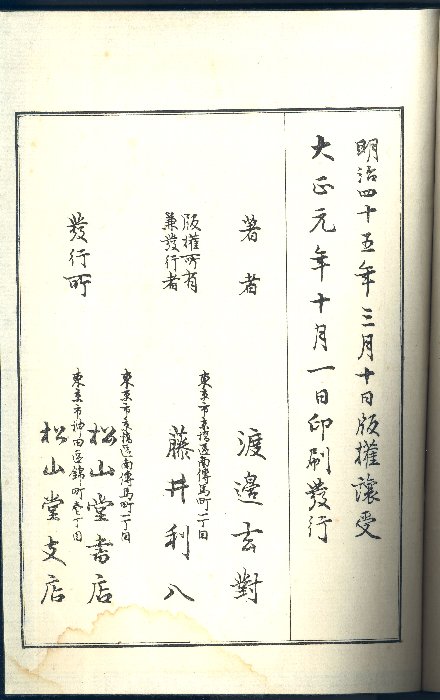 明治四十五年三月十日版權讓受
大正元年十月一日印刷發行
著者
渡邉玄對
版權所有
兼發行者
東京市京橋區南傳馬町一丁目
藤井利八
發行所
東京市京橋區南傳馬町一丁目
松山堂書店
東京市神田區錦町壱丁目
松山堂支店